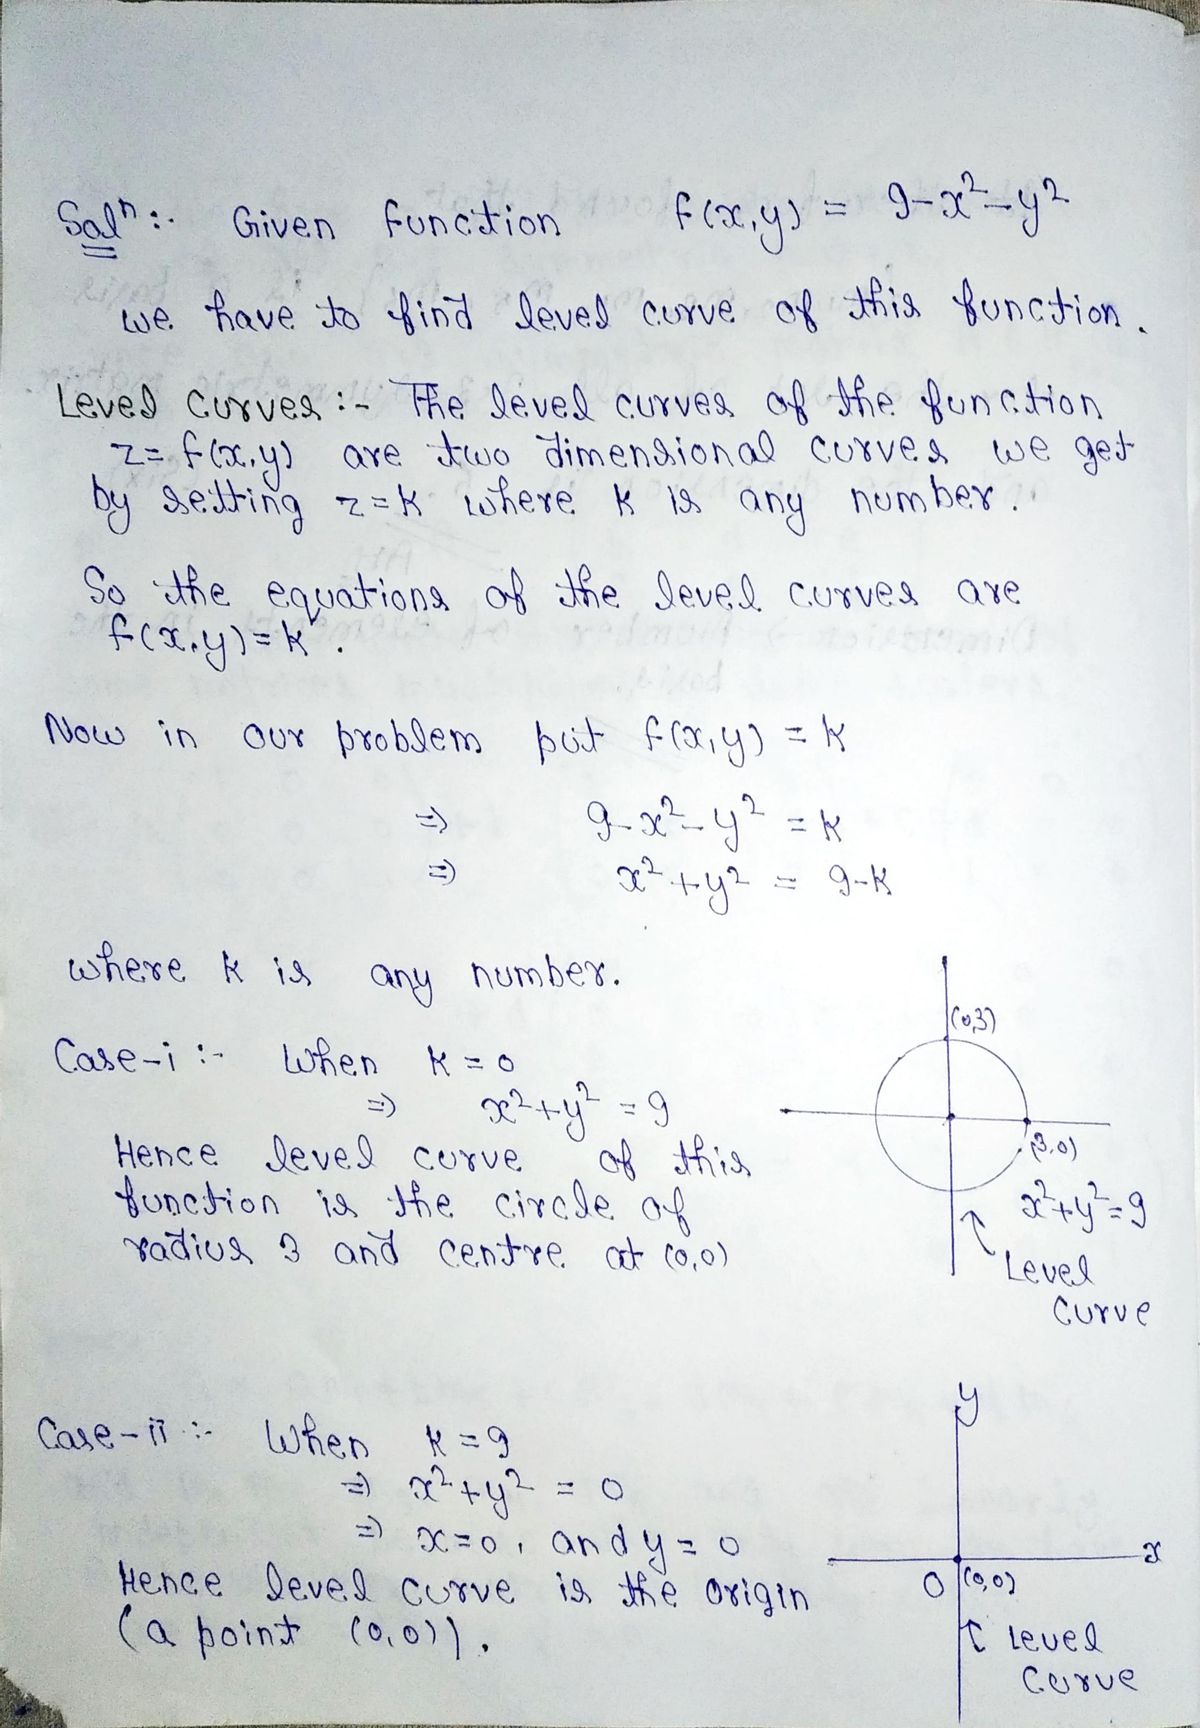 Solⁿ:- Given function f(x,y) = 9-x²-y²
we have to find level curve of this function.
Level curves:- The level curves of the function
z=f(x,y) are two dimensional curves we get
by setting z=k where k is any number.
So the equations of the level curves are
f(x,y)=k.
Now in our problem put f(x,y) = k
=> 9-x²-y² = k
=> x²+y² = 9-k
where k is any number.
Case-i :- When k=0
=> x²+y² = 9
Hence level curve of this
function is the circle of
radius 3 and centre at (0,0)
(0,3)
(3,0)
x²+y²=9
Level
Curve
Case-ii :- When k=9
=> x²+y² = 0
=> x=0, and y=0
Hence level curve is the origin
(a point (0,0)).
y
x
O (0,0)
Level
Curve